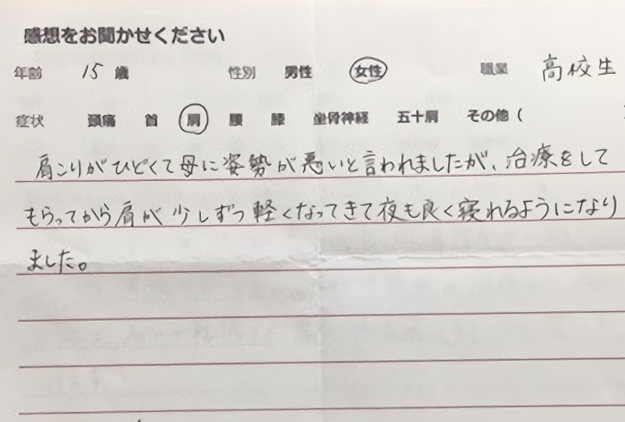 感想をお聞かせください
年齢 15 歳 性別 男性 女性 職業 高校生
症状 頭痛 首 肩 腰 膝 坐骨神経 五十肩 その他(
肩こりがひどくて母に姿勢が悪いと言われましたが、治療をして
もらってから肩が少しずつ軽くなってきて夜も良く寝れるようになり
ました。